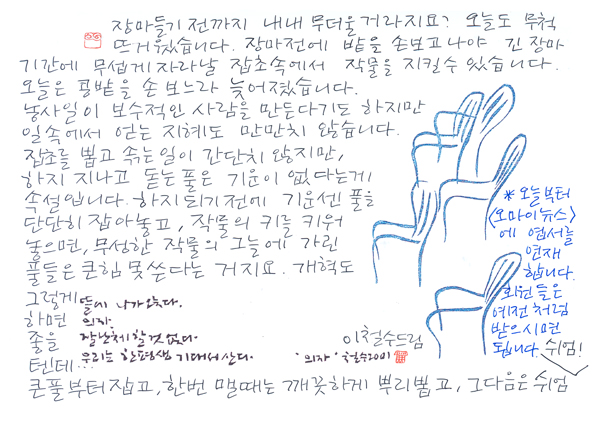 장마들기 전까지 내내 무더울 거라지요? 오늘도 무척
뜨거웠습니다. 장마전에 밭을 손보고 나야 긴 장마
기간에 무섭게 자라날 잡초속에서 작물을 지킬수 있습니다.
오늘은 콩밭을 손 보느라 늦어졌습니다.
농사일이 보수적인 사람을 만든다기도 하지만
일속에서 얻는 지혜도 만만치 않습니다.
잡초를 뽑고 솎는 일이 간단치 않지만,
하지 지나고 돋는 풀은 기운이 없다는게
속설입니다. 하지 되기 전에 기운센 풀을
단단히 잡아놓고, 작물의 키를 키워
놓으면, 무성한 작물의 그늘에 가린
풀들은 큰힘 못쓴다는 거지요. 개혁도
그렇게
하면
좋을
텐데...
큰풀부터 잡고, 한번 맬때는 깨끗하게 뿌리뽑고, 그다음은 쉬엄
쉬엄!
이철수드림
들에 나가 앉았다.
의자.
잘난체 할 것 없다.
우리는 한평생 기대서 산다.
'의자' 철수2001
* 오늘부터
<오마이뉴스>
에 엽서를
연재
합니다.
회원들은
예전처럼
받으시면
됩니다.